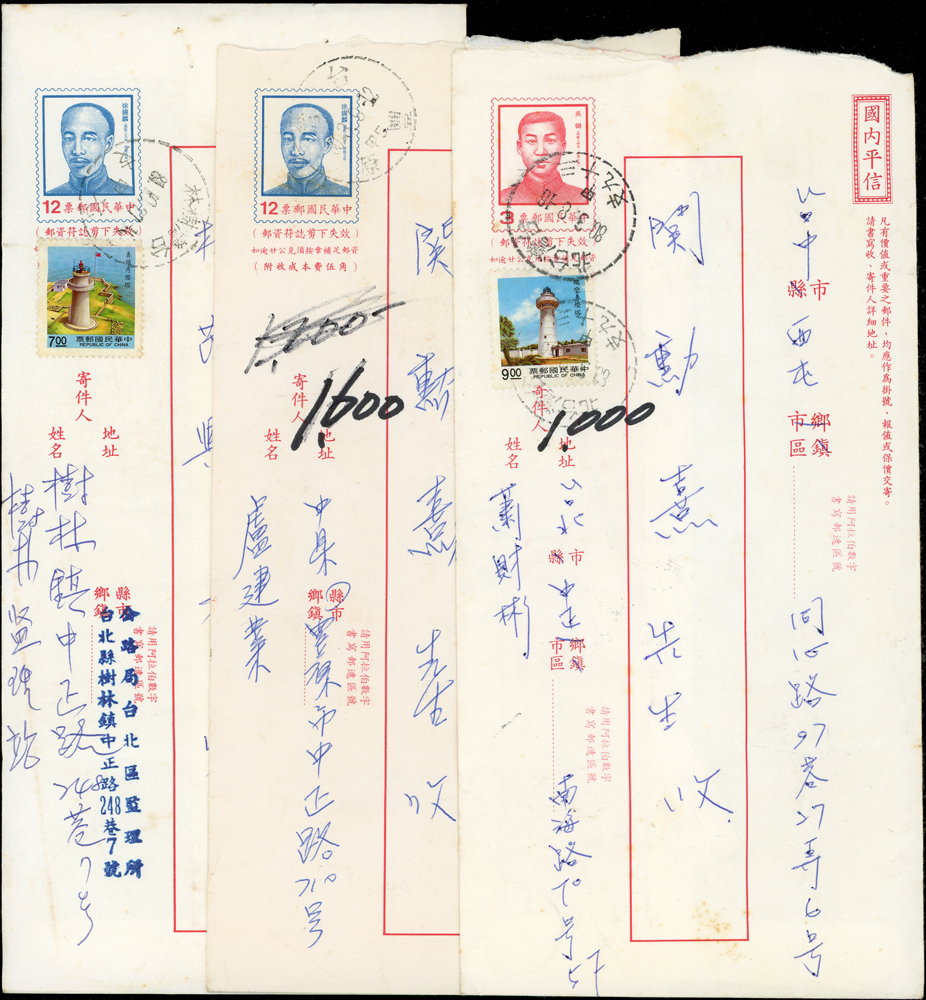 國內平信
凡有價值或重要之郵件，均應作為掛號、報值或保價交寄。
請書寫收、寄件人詳細地址。
縣市
西屯
鄉鎮
市區
請用阿拉伯數字
書寫郵遞區號
同心路97巷27弄6号
3
中華民國郵票
(郵資符誌剪下失效)
關勳熹先生收
9.00
中華民國郵票
REPUBLIC OF CHINA
寄件人
地址
姓名
1,000
縣市
鄉鎮
市區
請用阿拉伯數字
書寫郵遞區號
南海路70号5F
蕭財彬
徐錫麟
12
中華民國郵票
(郵資符誌剪下失效)
如逾廿公克須按章補足郵資
(附收成本費伍角)
1,600
寄件人
地址
姓名
縣市
鄉鎮
請用阿拉伯數字
書寫郵遞區號
市中正路710号
盧建業
關勳熹先生收
徐錫麟
12
中華民國郵票
(郵資符誌剪下失效)
7.00
中華民國郵票
REPUBLIC OF CHINA
寄件人
地址
姓名
縣市
鄉鎮
請用阿拉伯數字
書寫郵遞區號
樹林鎮中正路248巷7号
樹林監理站
公路局台北區監理所
台北縣樹林鎮中正路248巷7號